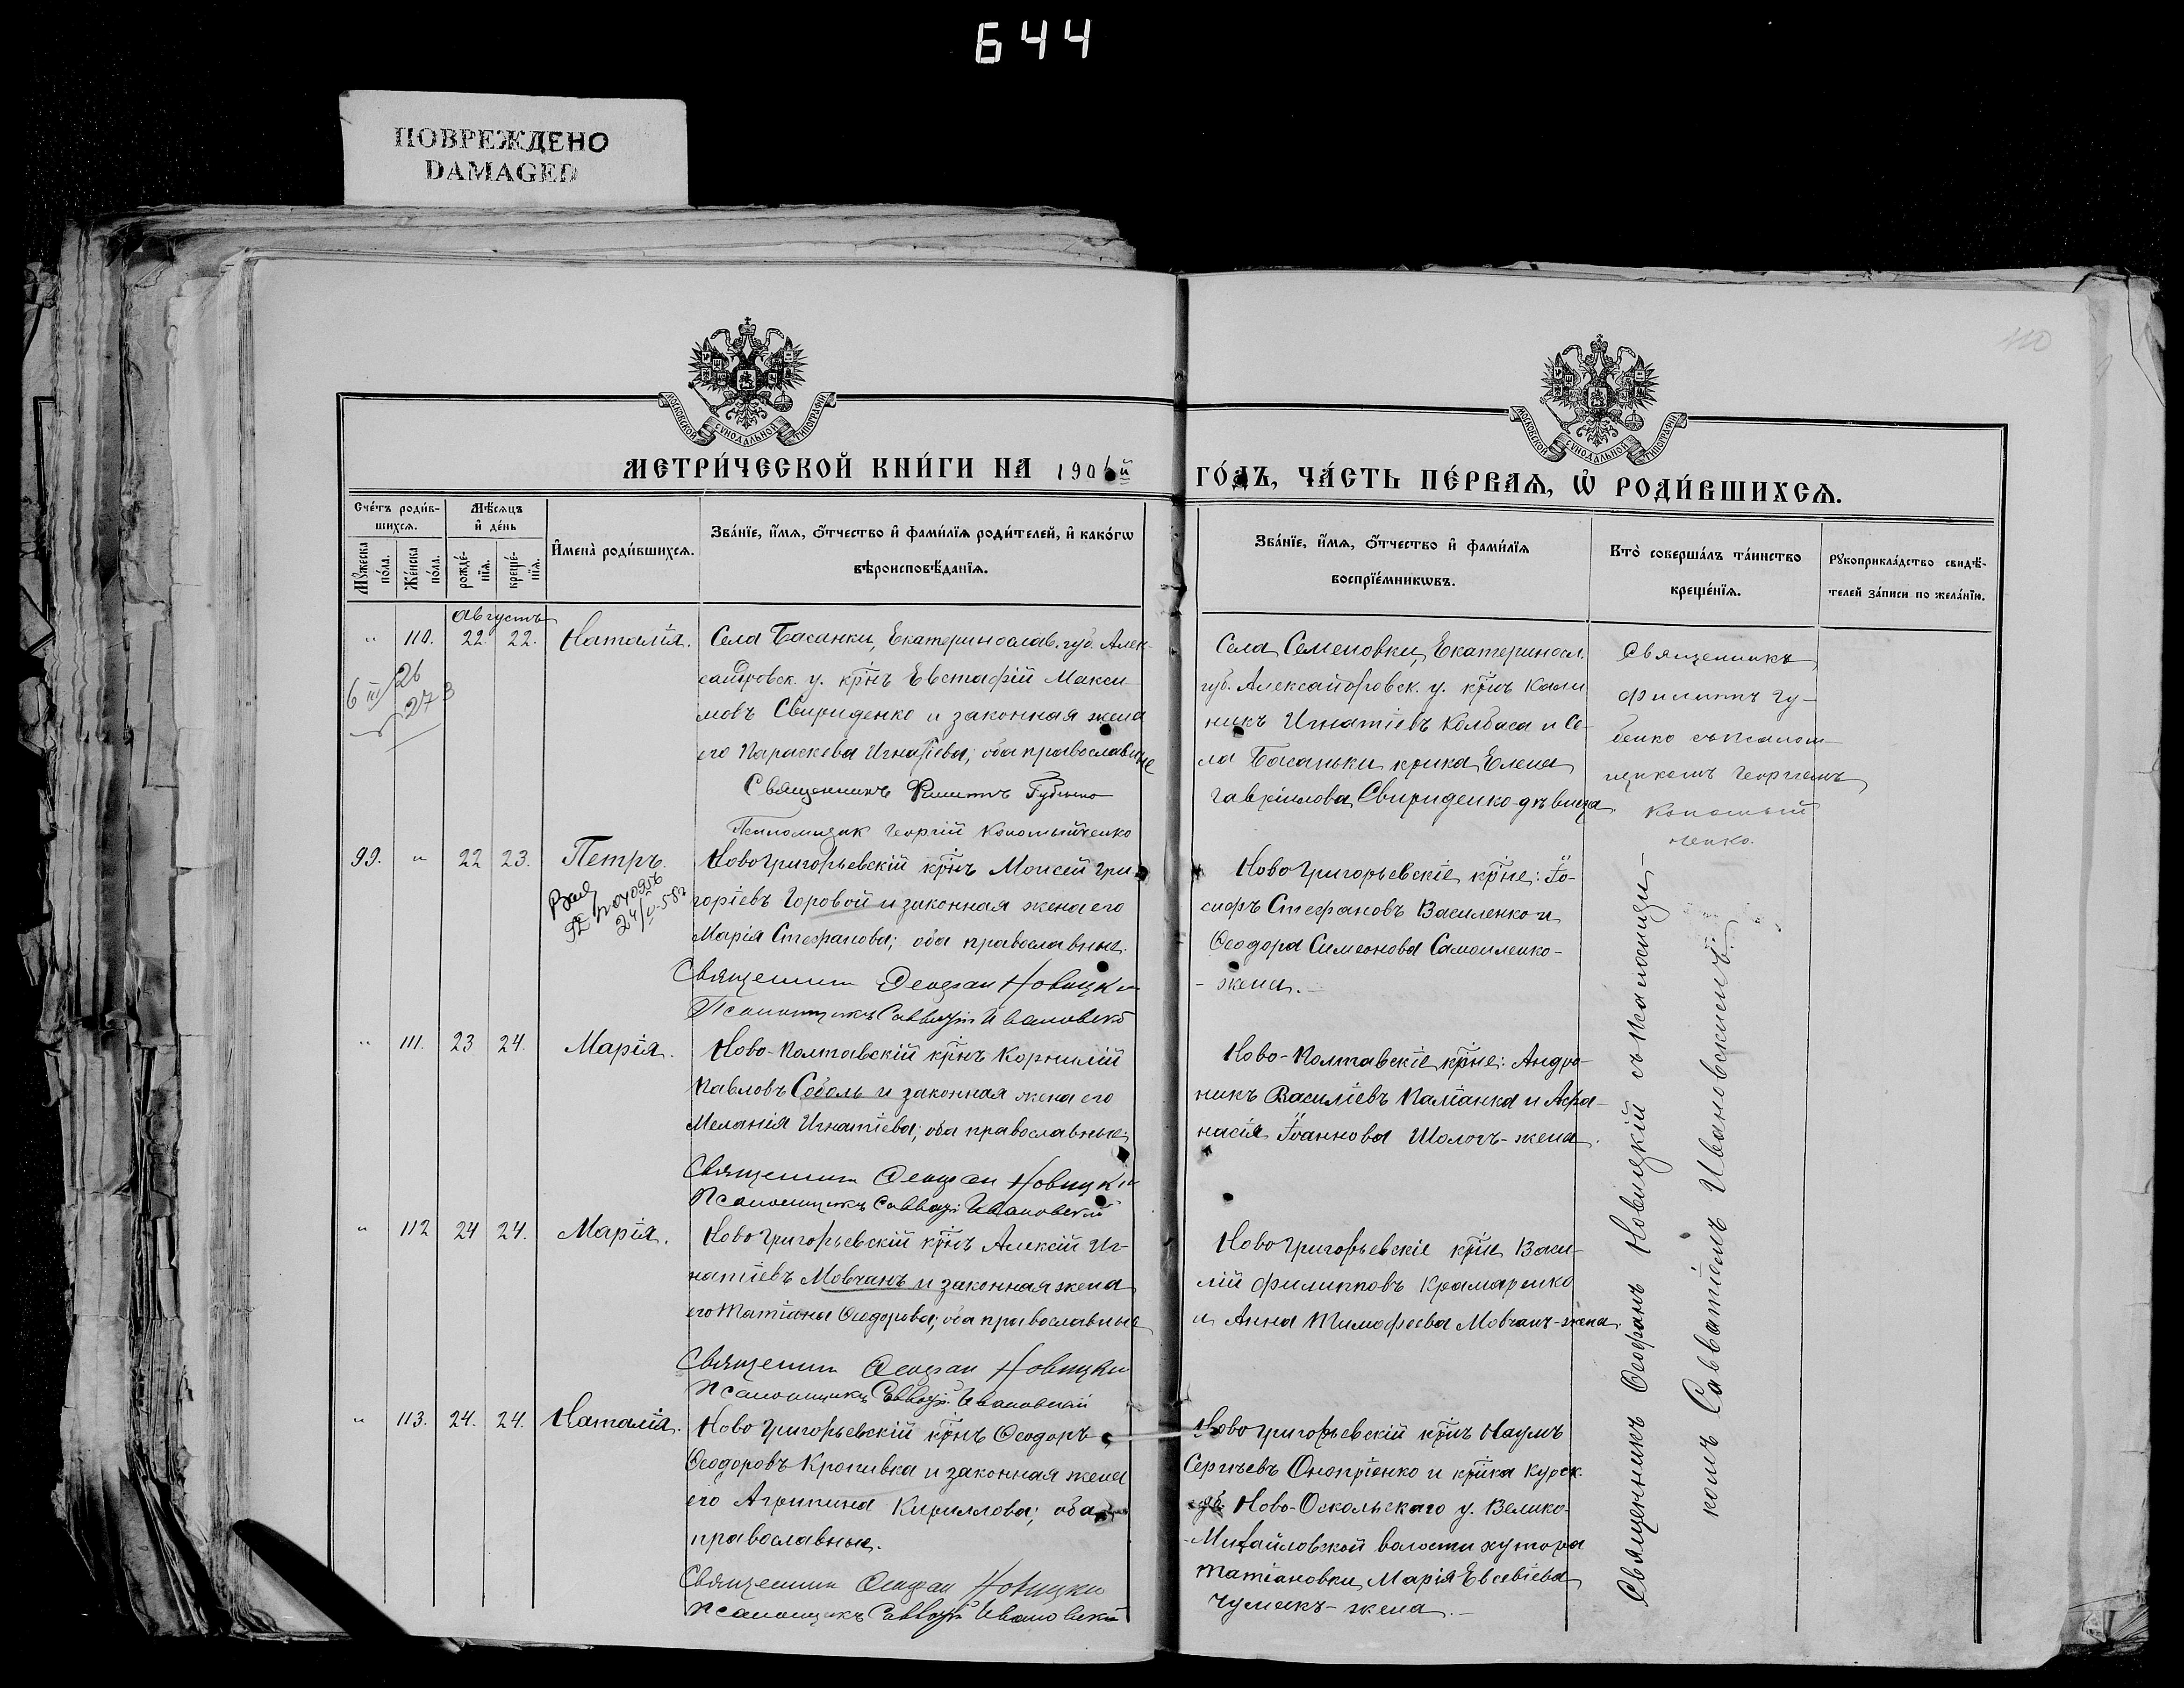 644
ПОВРЕЖДЕНО
DAMAGED
110
МОСКОВСКОЙ СѴНОДАЛЬНОЙ ТИПОГРАФІИ
МОСКОВСКОЙ СѴНОДАЛЬНОЙ ТИПОГРАФІИ
МЕТРИ́ЧЕСКОЙ КНИ́ГИ НА 1906й
ГО́ДЪ, ЧА́СТЬ ПЕ́РВАЯ, Ѡ҆ РОДИ́ВШИХСѦ.
Сче́тъ роди́в-
шихсѧ.
Мꙋ́жеска по́ла.
Же́нска по́ла.
Мѣ́сѧцъ
и҆ де́нь
рожде́-
нїѧ.
креще́-
нїѧ.
И҆мена̀ роди́вшихсѧ.
Зва́нїе, и҆́мѧ, ѻ҆́тчество и҆ фами́лїѧ роди́телей, и҆ како́гѡ
вѣроисповѣ́данїѧ.
Зва́нїе, и҆́мѧ, ѻ҆́тчество и҆ фами́лїѧ
воспрїе́мникѡвъ.
Кто̀ соверша́лъ та́инство
креще́нїѧ.
Рꙋкоприкла́дство свидѣ́-
телей за́писи по жела́нїю.
Августъ
" 110. 22. 22. Наталія.
Села Басанки, Екатеринослав. губ. Алек-
сандровск. у. кр̄нъ Евстафій Макси-
мовъ Свириденко и законная жена
его Параскева Игнатіева; оба православные
Священникъ Филиппъ Губенко
Псаломщик Георгій Кономыйченко
Села Семеновки, Екатериносл.
губ. Александровск. у. кр̄нъ Кали-
никъ Игнатіевъ Колбаса и Се-
ла Басаньки кр̄нка Елена
Гавріилова Свириденко-дѣвица
Священникъ
Филиппъ Гу-
бенко съ псалом-
щикомъ Георгіемъ
Кономый-
ченко.
6 III/26
273
99. " 22 23. Петръ.
24/V-58г
Новогригорьевскій кр̄нъ Моисей Гри-
горіевъ Горовой и законная жена его
Марія Стефанова; оба православные.
Священник Ѳеофан Новицкій
Псаломщикъ Савватій Ивановскій
Новогригорьевскіе кр̄не: Іо-
сифъ Стефановъ Василенко и
Ѳеодора Симеонова Самойленко-
- жена.
" 111. 23 24. Марія.
Ново-Полтавскій кр̄нъ Корнилій
Павловъ Соболь и законная жена его
Меланія Игнатіева; оба православные.
Священник Ѳеофан Новицкій
Псаломщикъ Савватій Ивановскій
Ново-Полтавскіе кр̄не: Андро-
никъ Василіевъ Паліанка и Аѳа-
насія Іоаннова Шологъ-жена.
" 112 24 24. Марія.
Новогригорьевскій кр̄нъ Алексій Иг-
натіевъ Мовчанъ и законная жена
его Татіана Ѳеодорова; оба православные
Священник Ѳеофан Новицкій
Псаломщикъ Савватій Ивановскій
Новогригорьевскіе кр̄не Васи-
лій Филипповъ Крамаренко
и Анна Тимофеева Мовчанъ-жена.
" 113. 24. 24. Наталія.
Новогригорьевскій кр̄нъ Ѳеодоръ
Ѳеодоровъ Кропивка и законная жена
его Агрипина Кириллова; оба
православные.
Священник Ѳеофан Новицкій
Псаломщикъ Савватій Ивановскій
Новогригорьевскій кр̄нъ Наумъ
Сергѣевъ Онопріенко и кр̄нка Курск.
губ. Ново-Оскольскаго у. Велико-
-Михайловской волости хутора
Татіановки Марія Евсевіева
Чумакъ-жена.-
Священникъ Ѳеофанъ Новицкій съ псаломщи-
комъ Савватіемъ Ивановскимъ.